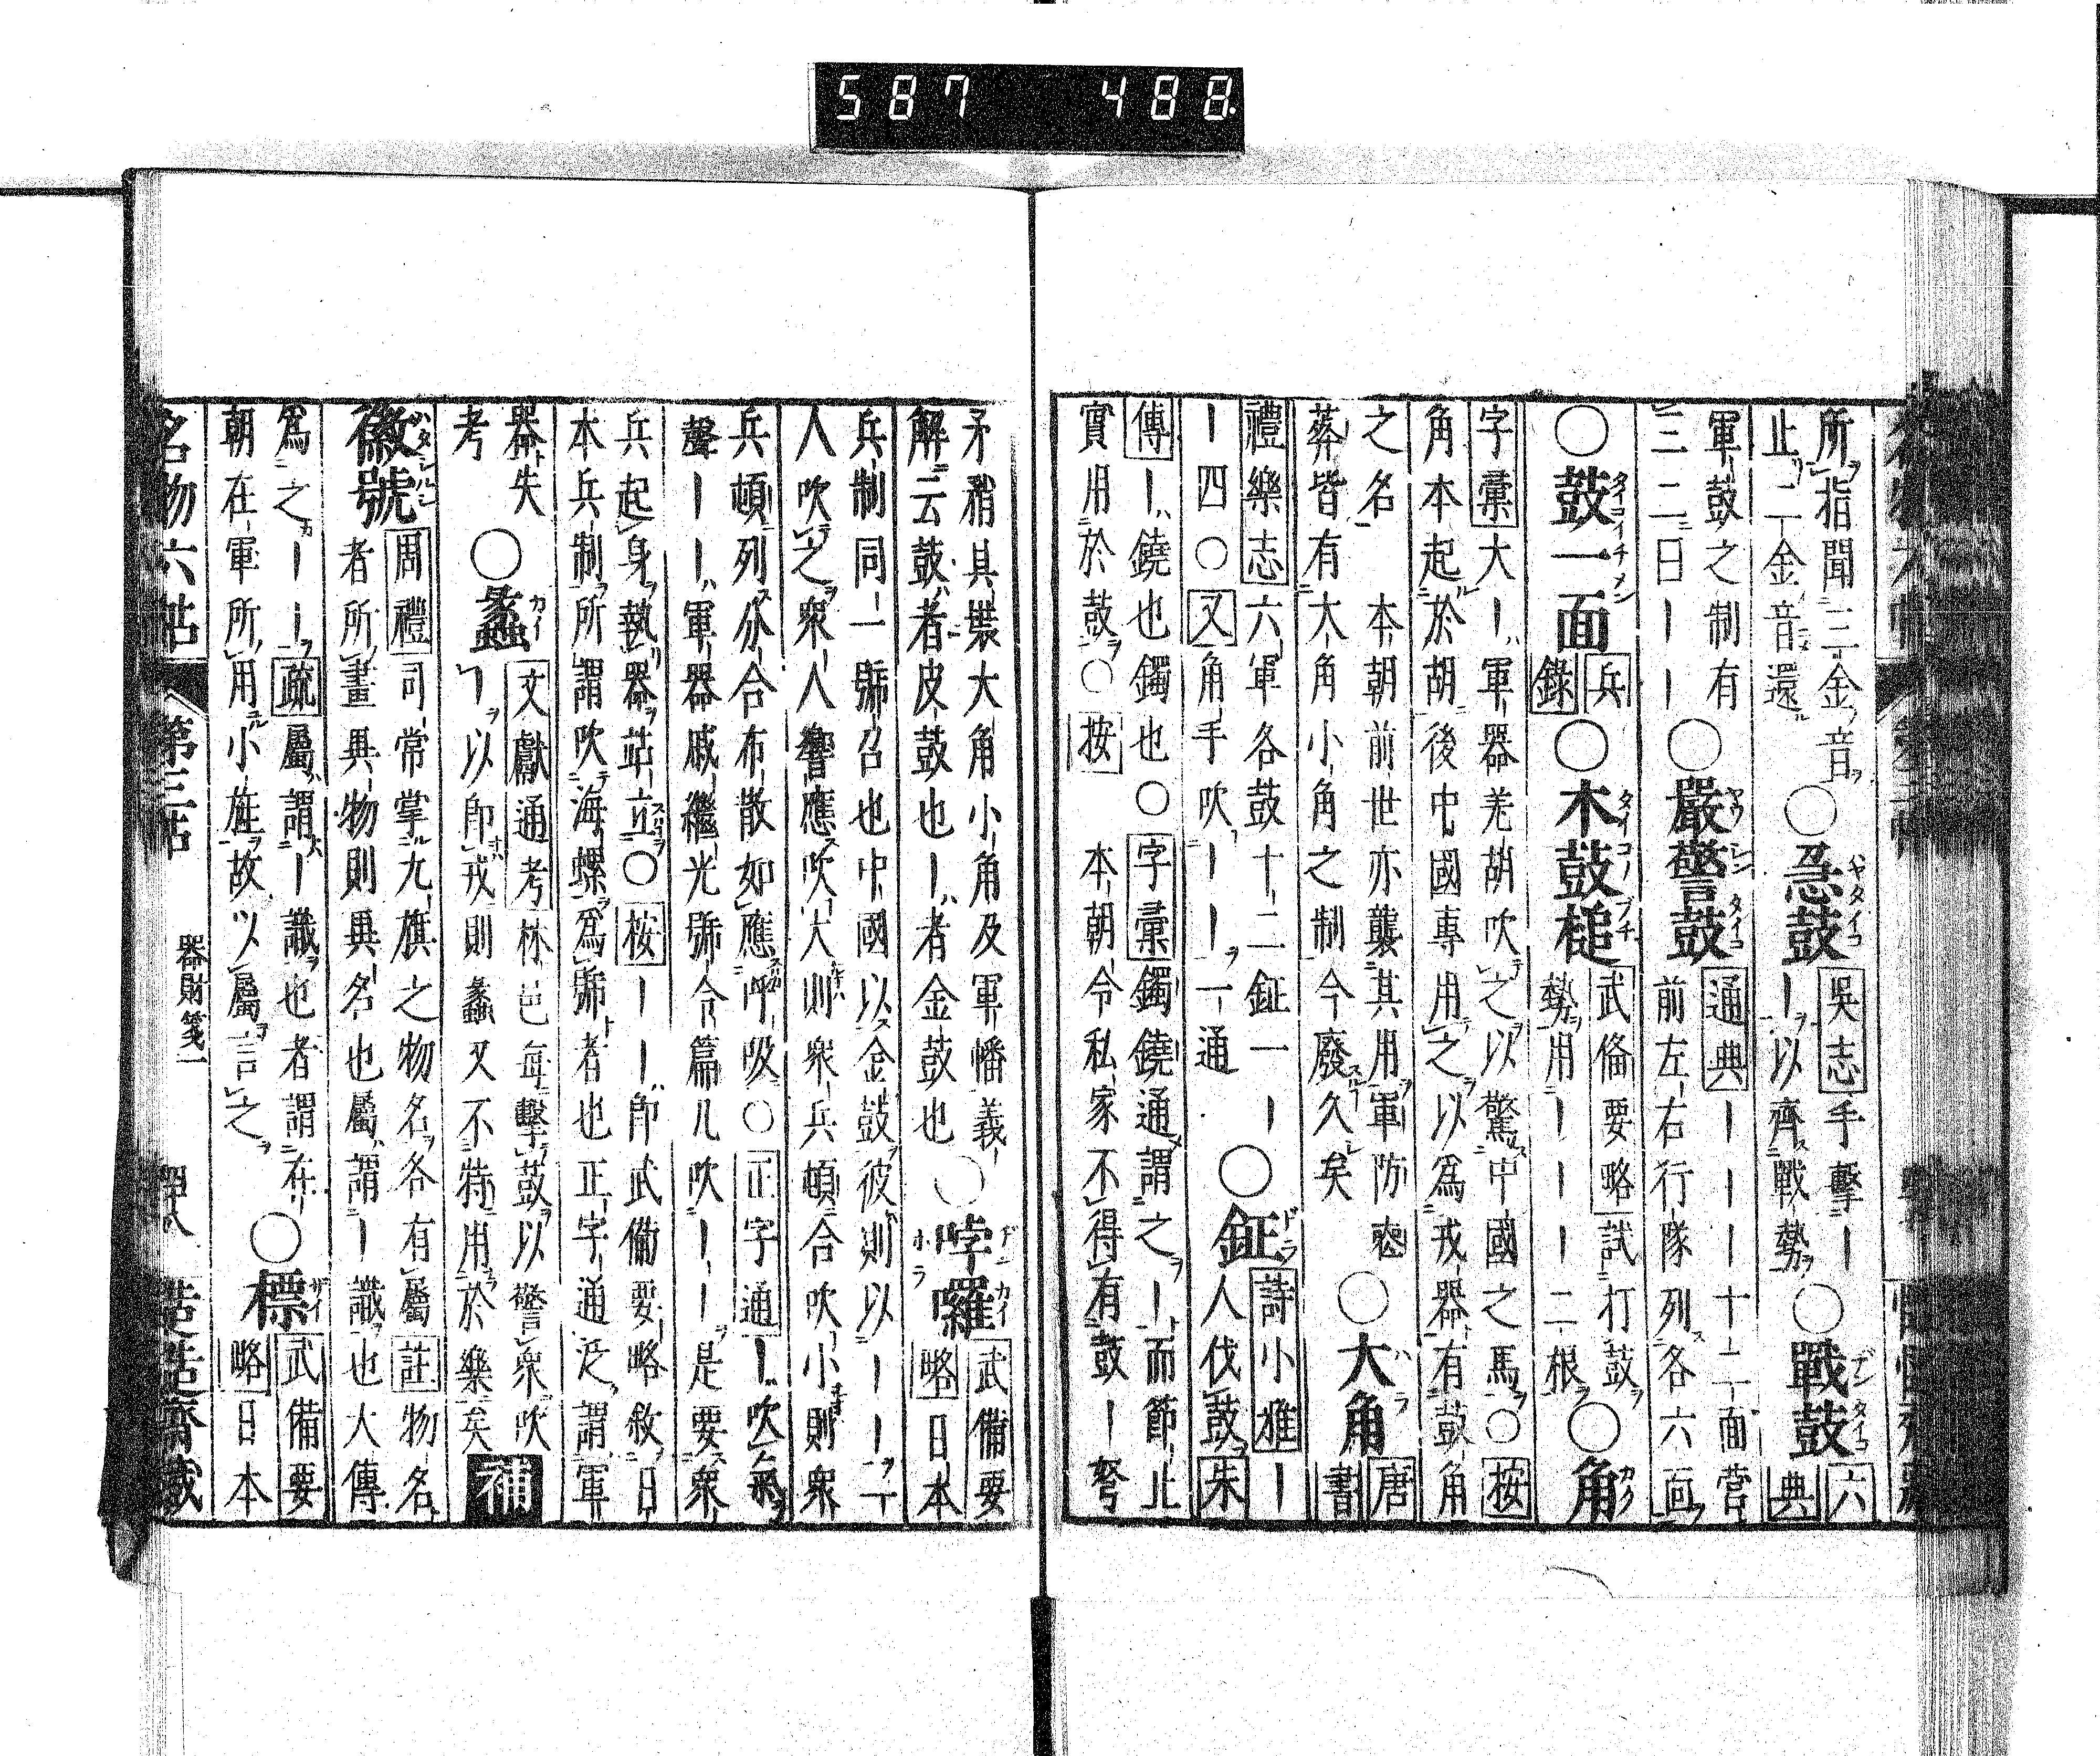 587 488
所指聞三金音
止二金音還
○急鼓
吳志手擊｜
｜以齊戰勢
○戰鼓
六
典
軍鼓之制有
三二曰｜｜
○嚴警鼓
通典｜｜｜十二面營
前左右行隊列各六面
○鼓一面
兵
錄
○木鼓槌
武俻要略試打鼓
勢用｜｜｜二根
○角
字彙大｜軍器羌胡吹之以驚中國之馬○按
角本起於胡後中國專用之以爲戎器有鼓角
之名 本朝前世亦襲其用軍防
葬皆有大角小角之制今廢久矣
○大角
唐
書
禮樂志六軍各鼓十二鉦一｜
｜四○又角手吹｜｜一通
○鉦
詩小雅｜
人伐鼓朱
傳｜鐃也鐲也○字彙鐲鐃通謂之｜而節止
實用於鼓○按 本朝令私家不得有鼓｜
矛矟具裝大角小角及軍幡義
解云鼓者皮鼓也｜者金鼓也
○哱囉
武備要
略日本
兵制同一號召也中國以金鼓彼則以｜｜一
人吹之衆人響應吹大則衆兵頓合吹小則衆
兵頓列分合布散如應呼吸○正字通｜吹氣
聲｜｜軍器戚繼光號令篇凡吹｜｜是要衆
兵起身執器站立○按｜｜卽武備要略敘日
本兵制所謂吹海螺爲號者也正字通泛謂軍
器失
考
○蠡
文獻通考林邑每擊鼓以警衆吹
｜以卽戎則蠡又不特用於樂矣
補
徽號
周禮司常掌九旗之物名各有屬註物名
者所畫異物則異名也屬謂｜識也大傳
爲之｜｜疏屬謂｜識也者謂在
朝在軍所用小旌故以屬言之
○標
武備要
略日本
名物六帖
第三帖
器財箋一